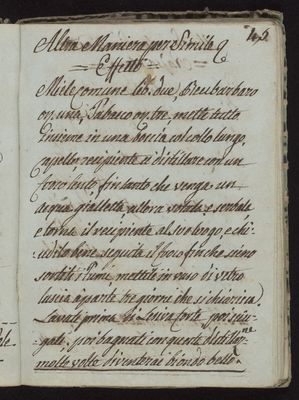 45
Altra Maniera per Simile
Effetto
Miele comune lib. due, Reubarbaro
on. una, Tabacco on. tre, mette tutto
insieme in una boccia col collo lungo,
capello recipiente a distillare con un
foco lento, fin tanto che venga un
acqua gialletta, allora votala, e serbala
e torna il recipiente al suo luogo, e chi-
udilo bene, seguita il foco fin che sieno
sortiti i fumi, mettila in vaso di vetro
lascia aparte tre giorni che si chiarisca.
Lavati prima di Lesiva forte, poi asciu-
gati, e poi bagnati con queste distillaz.ne
molte volte diventerai biondo bello.